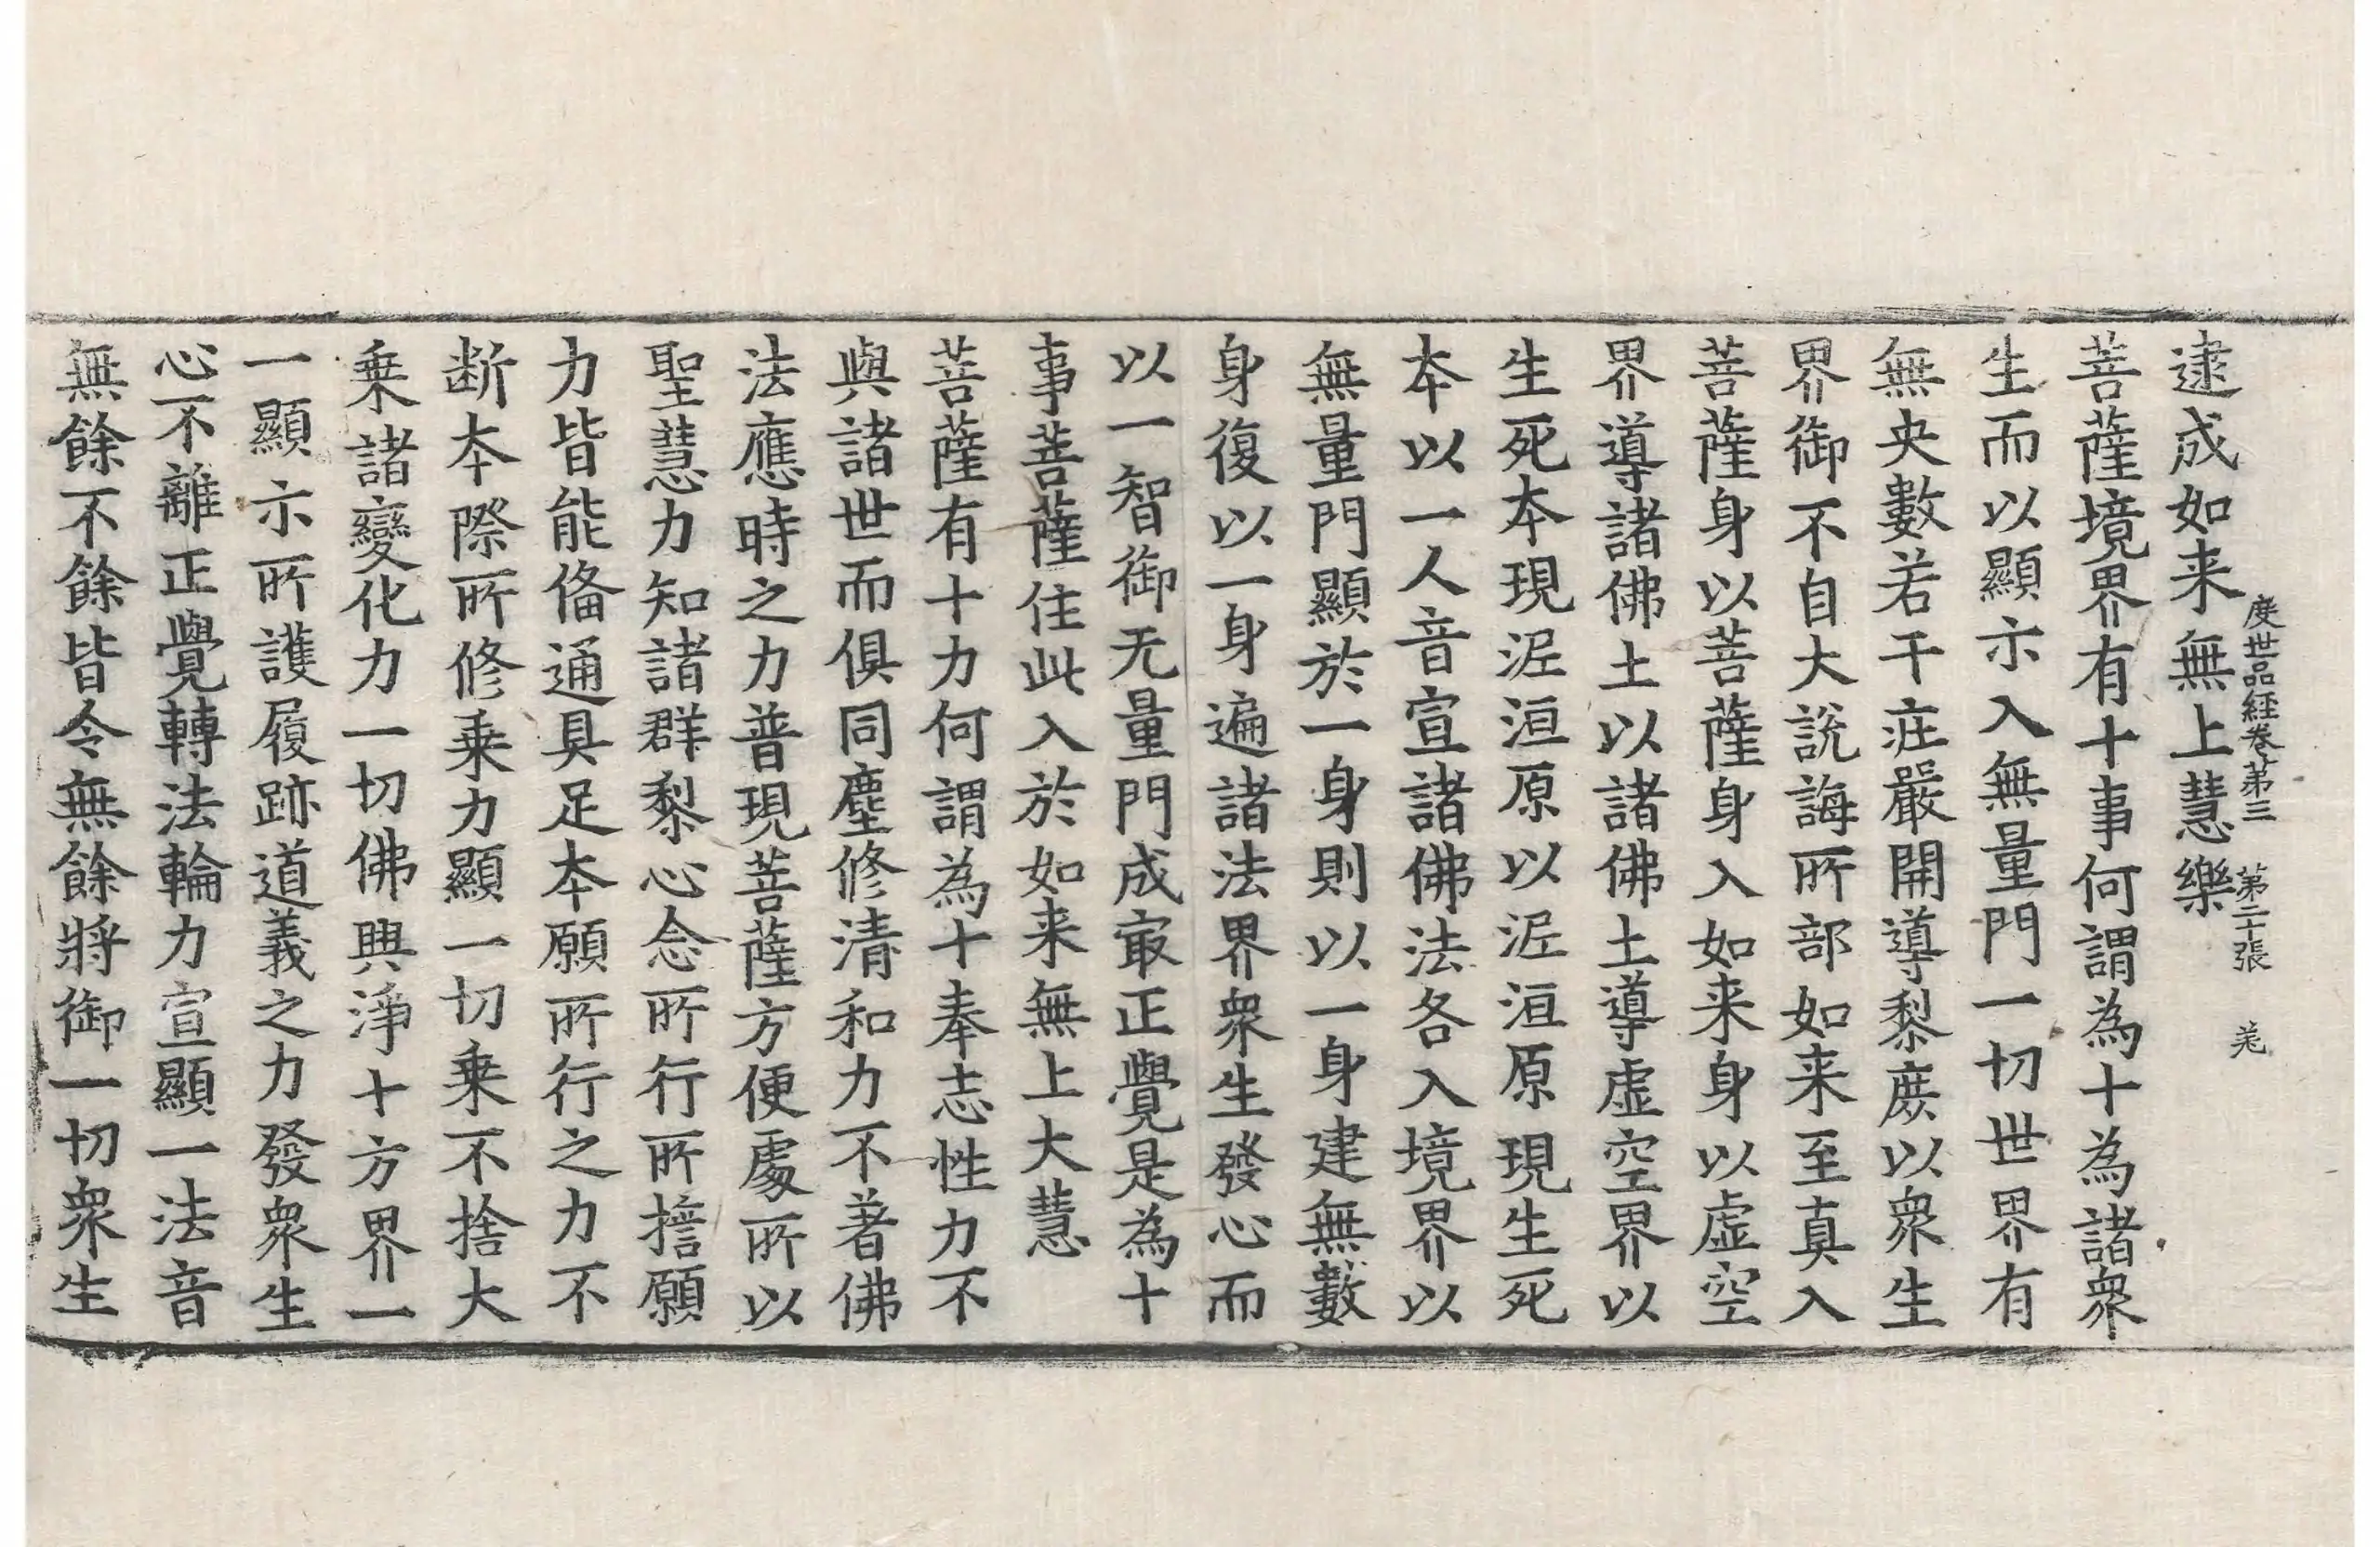 逮成如来無上慧樂
度世品経巻第三　第二十張　羌
菩薩境界有十事何謂為十為諸衆
生而以顯示入無量門一切世界有
無央數若干疘嚴開導黎庻以衆生
界御不自大說誨所部如来至真入
菩薩身以菩薩身入如来身以虚空
界導諸佛土以諸佛土導虚空界以
生死本現泥洹原以泥洹原現生死
本以一人音宣諸佛法各入境界以
無量門顯於一身則以一身建無數
身復以一身遍諸法界衆生發心而
以一智御无量門成㝡正覺是為十
事菩薩住此入於如来無上大慧
菩薩有十力何謂為十奉志性力不
與諸世而俱同塵修清和力不著佛
法應時之力普現菩薩方便處所以
聖慧力知諸群黎心念所行所擔願
力皆能俻通具足本願所行之力不
断本際所修乗力顯一切乗不捨大
乗諸變化力一切佛興淨十方界一
一顯示所護履跡道義之力發衆生
心不離正覺轉法輪力宣顯一法音
無餘不餘皆令無餘將御一切衆生